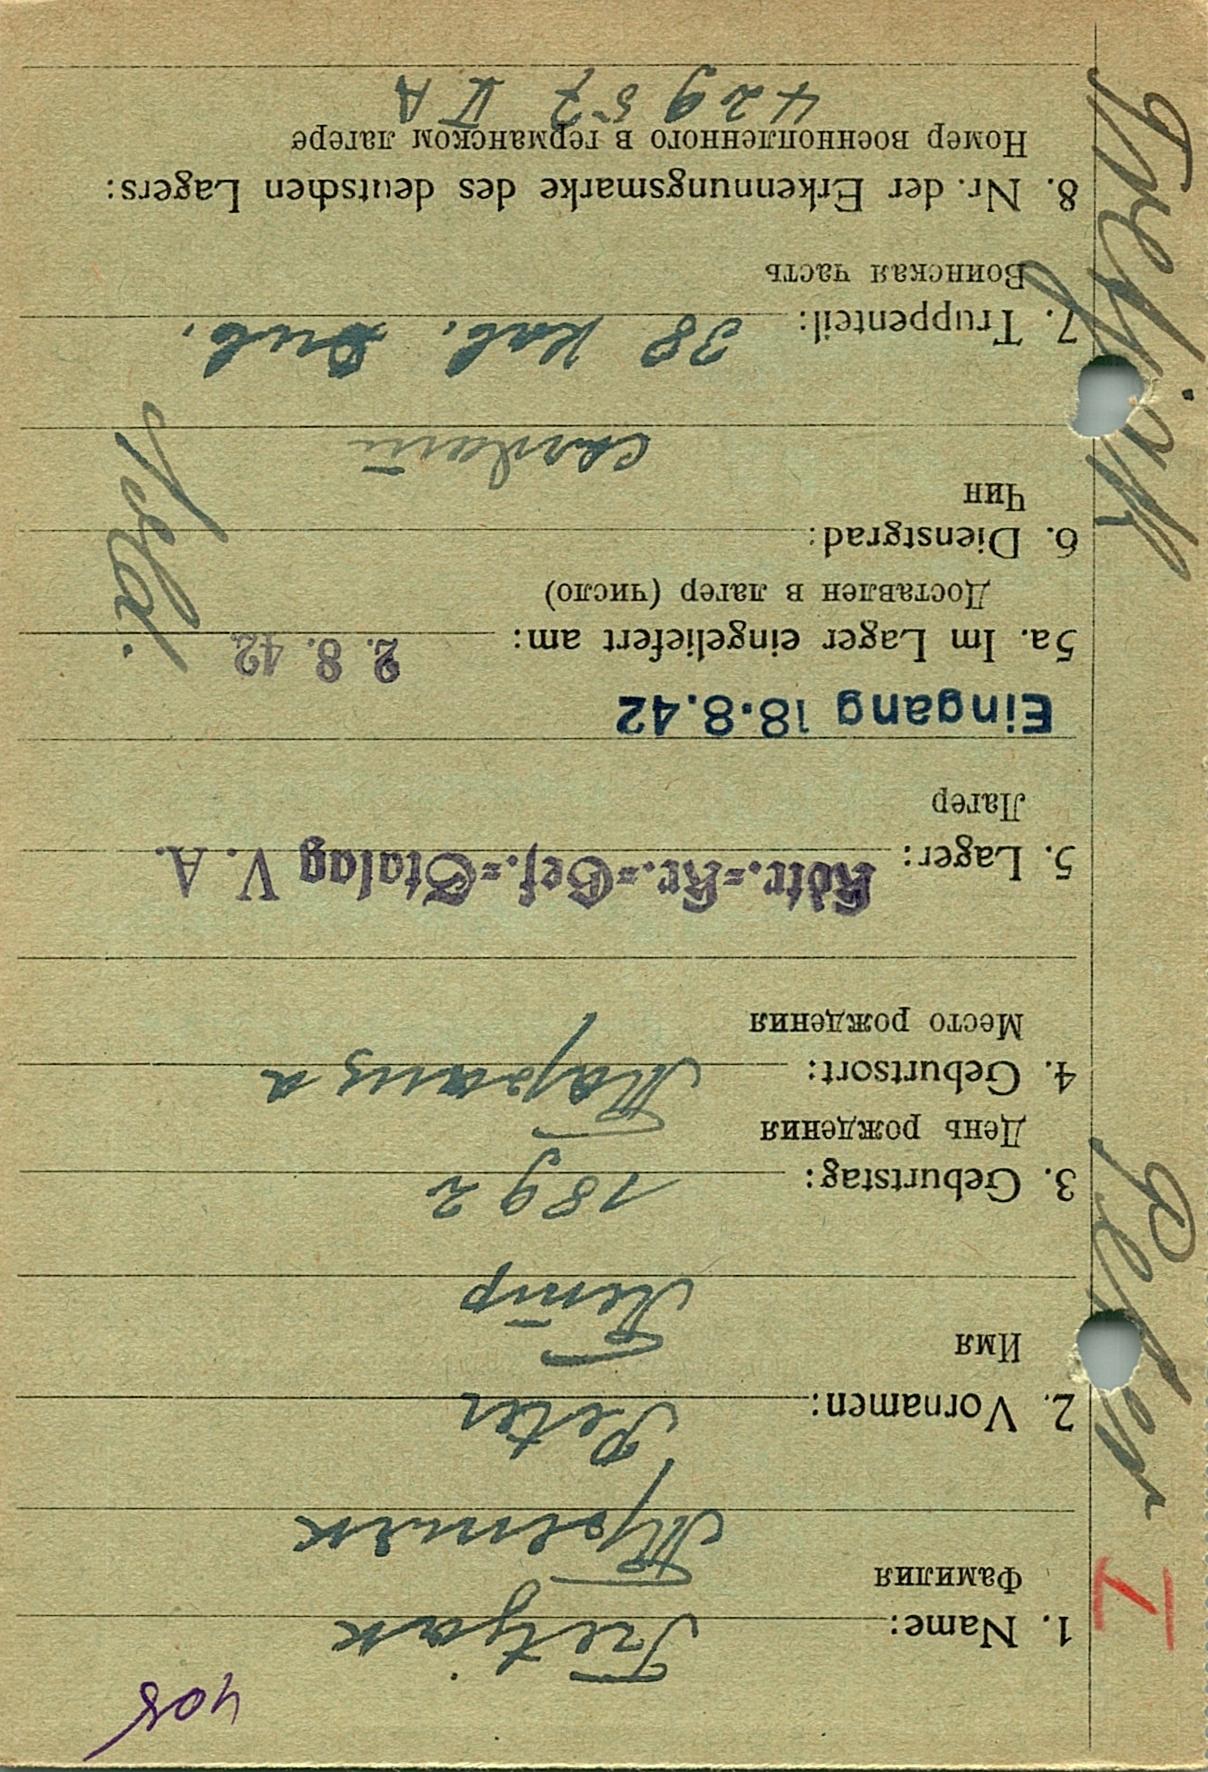 408
1. Name: Tretjak
Фамилия Третяк
2. Vornamen: Peter
Имя Петір
3. Geburtstag: 1892
День рождения
4. Geburtsort:
Место рождения
5. Lager: Kdtr.=Kr.=Gef.=Stalag V. A.
Лагер
Eingang 18.8.42
5a. Im Lager eingeliefert am: 2. 8. 42
Доставлен в лагер (число)
6. Dienstgrad: Sold.
Чин
7. Truppenteil: 38 кав. Див.
Воинская часть
8. Nr. der Erkennungsmarke des deutschen Lagers:
Номер военнопленного в германском лагере
42957 V A
I Peter Tretjak